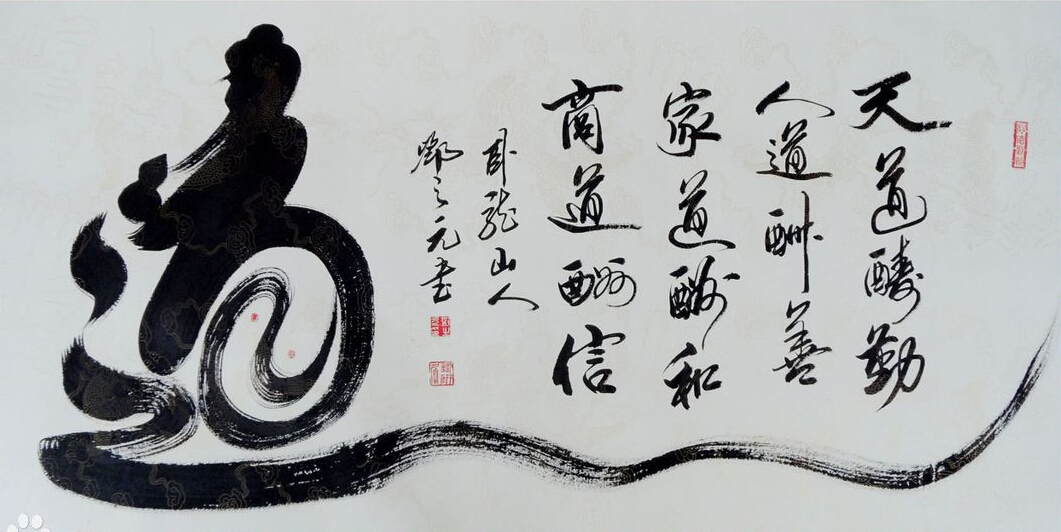 天道酬勤
人道酬善
家道酬和
商道酬信
卧龙山人
邓之元书
道